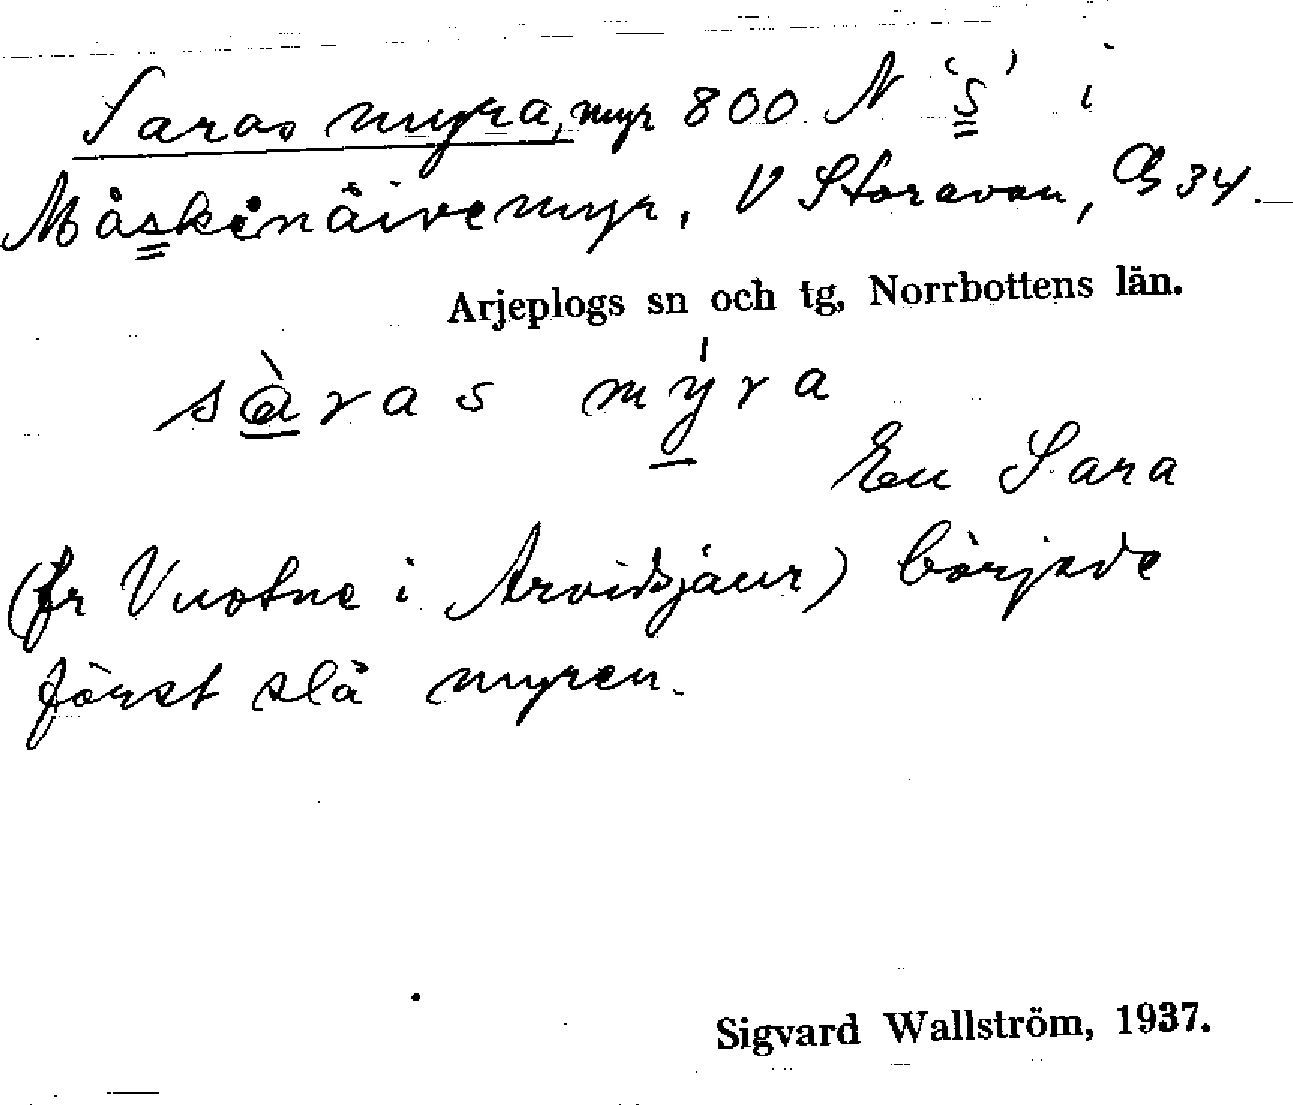 Saras myra, myr 800 N 's' i
Måskinäivemyr, V Storavan, G 34.
Arjeplogs sn och tg, Norrbottens län.
sàras mýra
En Sara
(fr Vuotne i Arvidsjaur) började
först slå myren.
Sigvard Wallström, 1937.